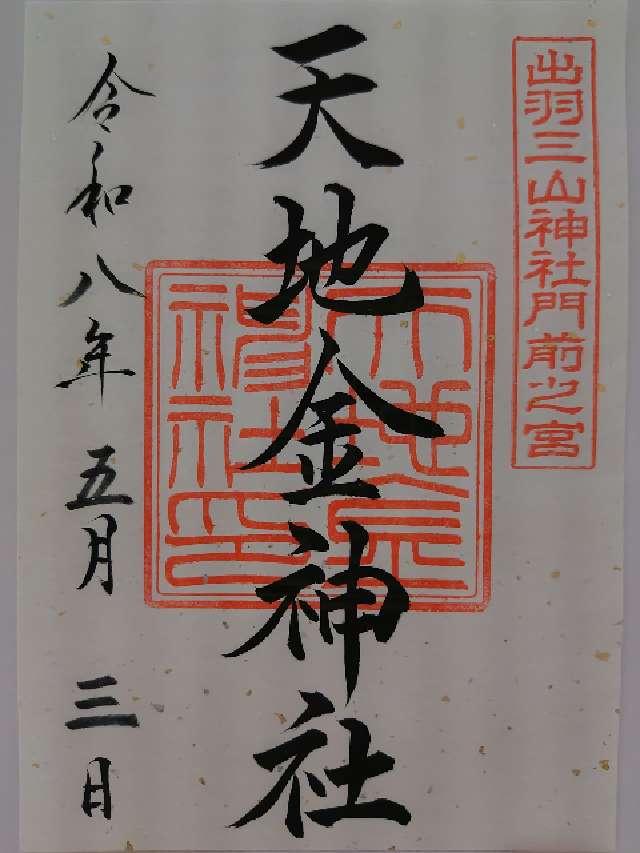 出羽三山神社門前之宮
天地金神社
令和八年五月三日